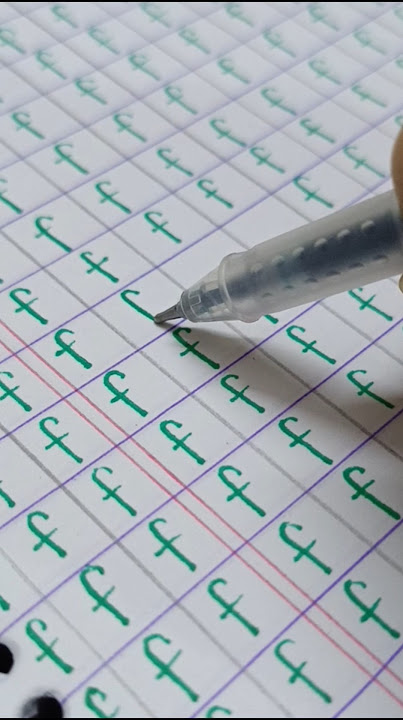 f f
f f f
f f f f f
f f f f f f f
f f f f f f f
f f f f f f f
f f f
f f f f
f f f f f f
f f f f f f
f f f f f
f f f